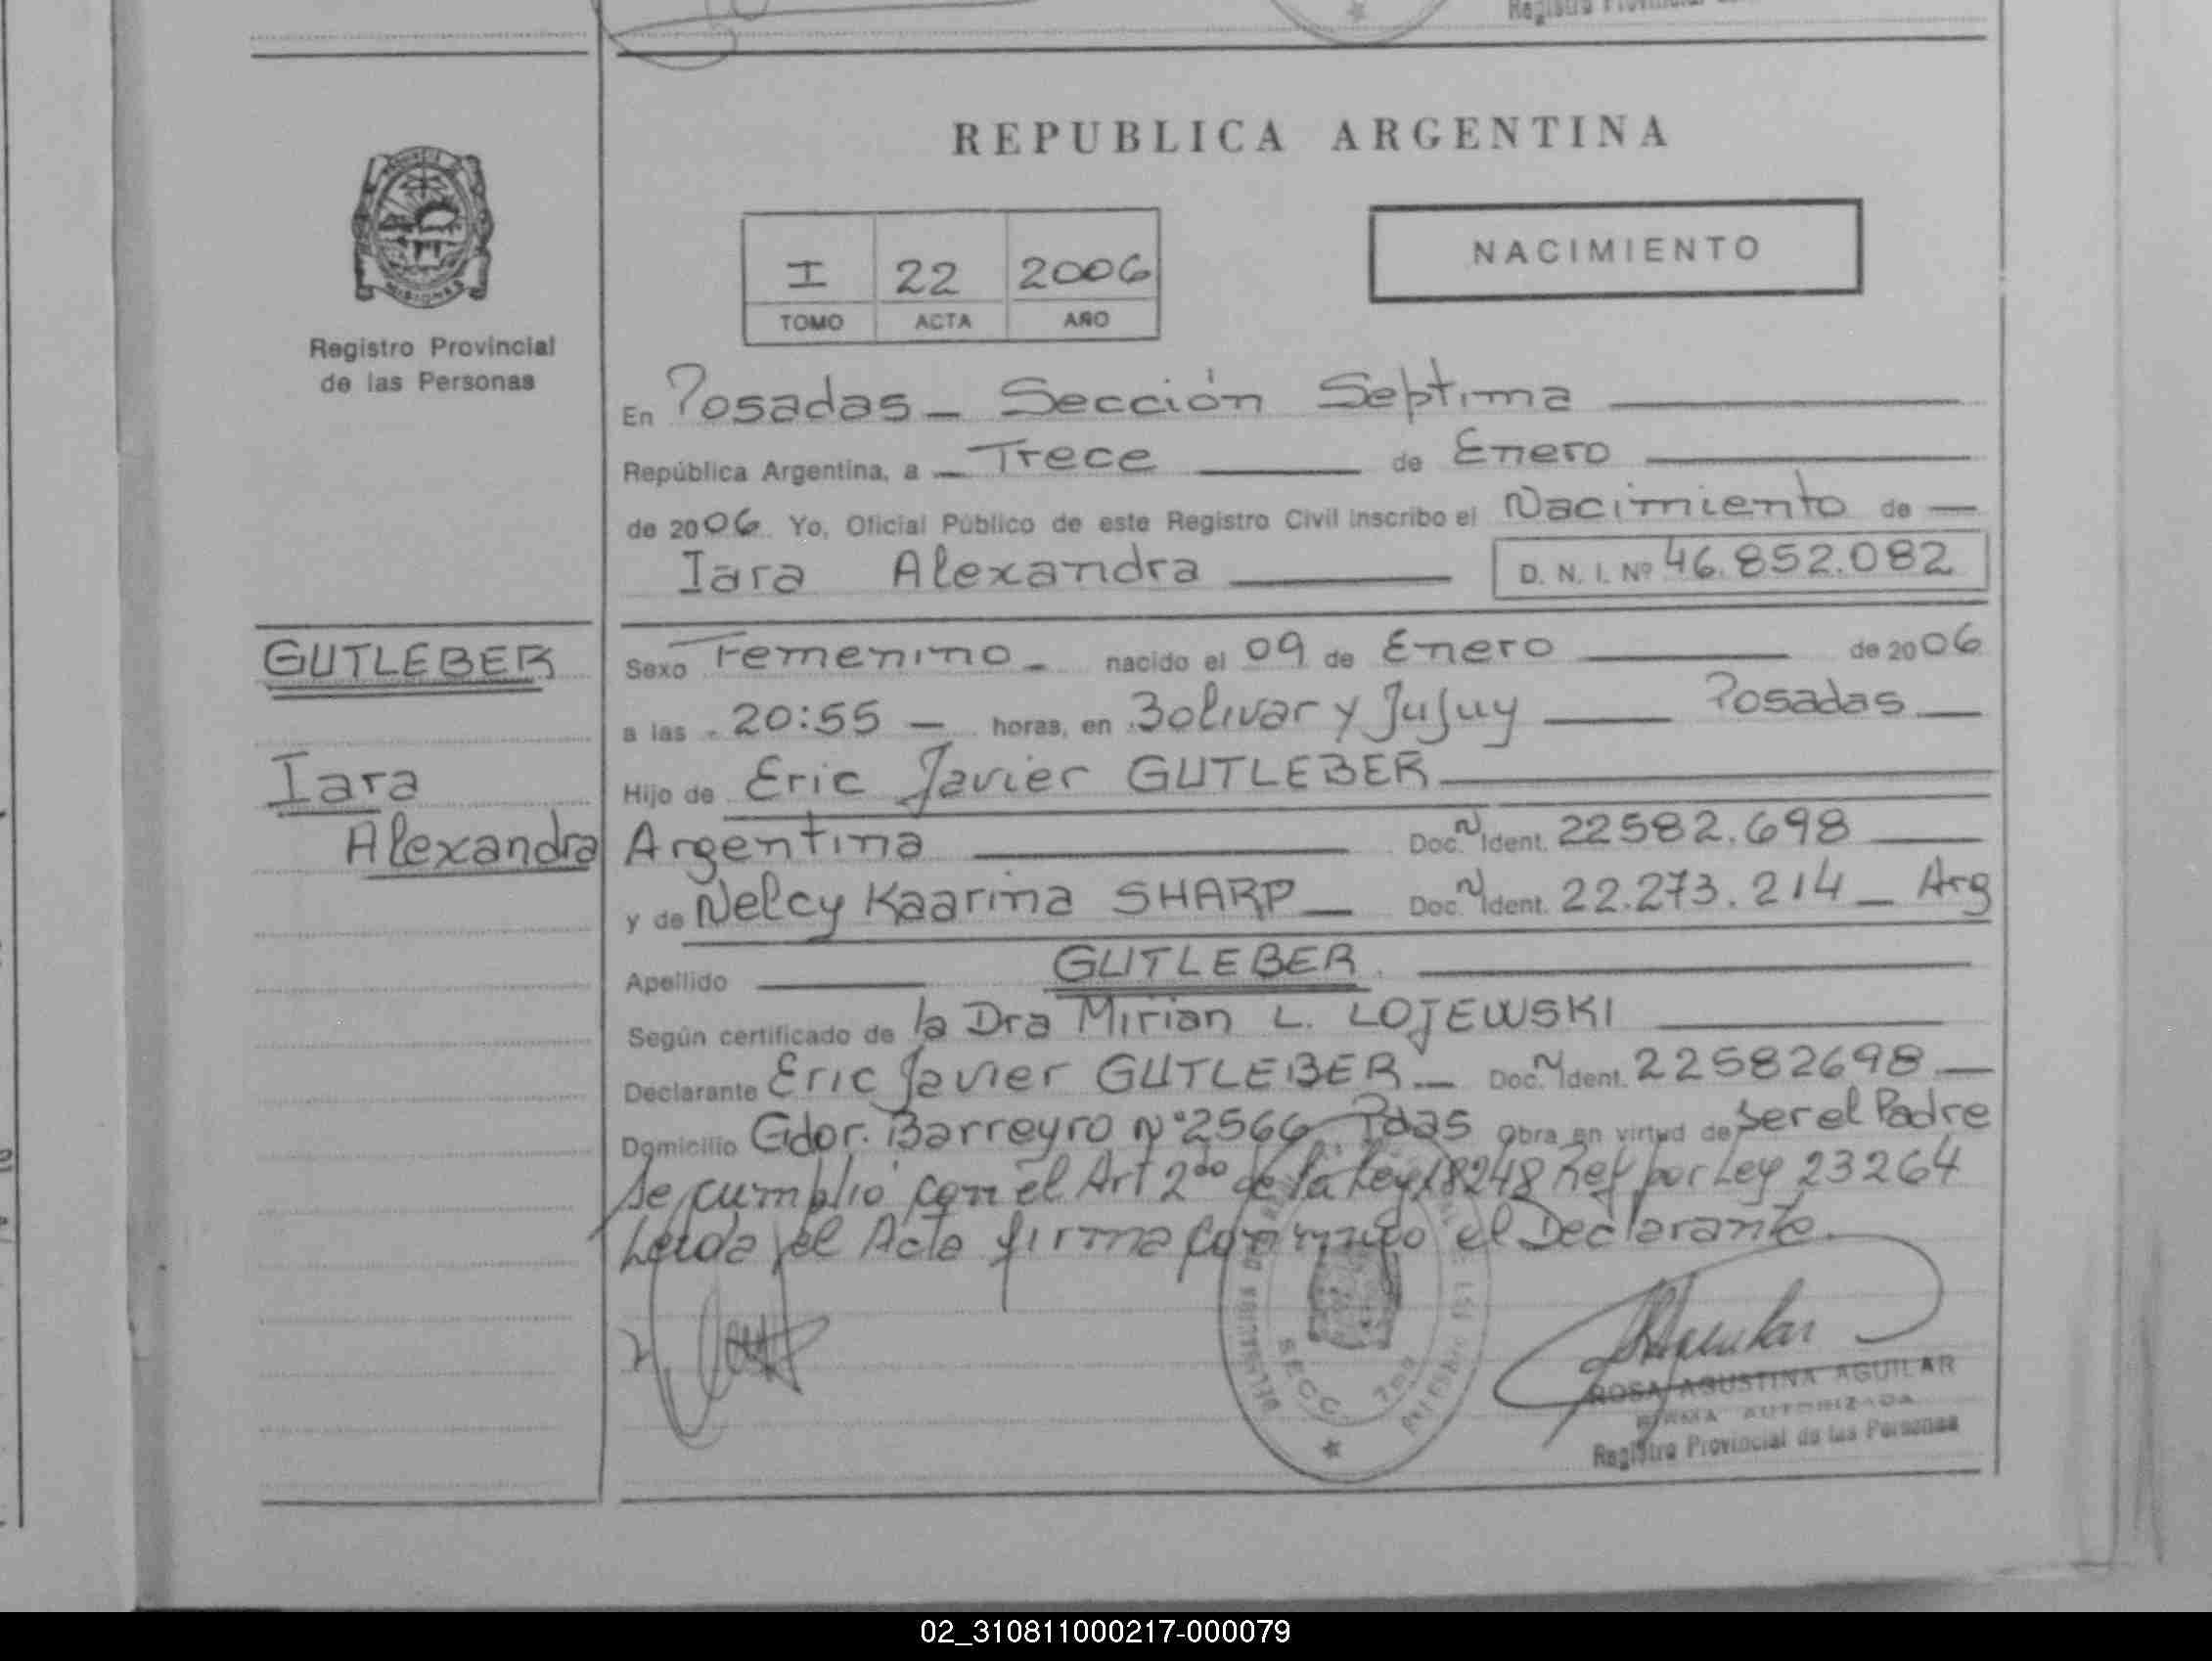 Registro Provincial
REPUBLICA ARGENTINA
MISIONES
Registro Provincial
de las Personas
I 22 2006
TOMO ACTA AÑO
NACIMIENTO
En Posadas - Sección Septima
República Argentina, a Trece de Enero
de 2006. Yo, Oficial Público de este Registro Civil inscribo el Nacimiento de
Iara Alexandra D. N. I. Nº 46.852.082
GUTLEBER
Iara
Alexandra
Sexo Femenino - nacido el 09 de Enero de 2006
a las 20:55 - horas, en Bolivar y Jujuy Posadas
Hijo de Eric Javier GUTLEBER
Argentina Doc. N Ident. 22582.698
y de Nelcy Kaarina SHARP Doc. N Ident. 22.273.214 - Arg
Apellido GUTLEBER
Según certificado de la Dra Mirian L. LOJEWSKI
Declarante Eric Javier GUTLEBER Doc. N Ident. 22582698
Domicilio Gdor. Barreyro Nº 2566 Pdas Obra en virtud de ser el Padre
Se cumplió con el Art 2do de la Ley 18248 Ref. por Ley 23264
Leida el Acta firma conmigo el Declarante.
SECC. 7ma
ROSA AGUSTINA AGUILAR
FIRMA AUTORIZADA
Registro Provincial de las Personas
02_310811000217-000079